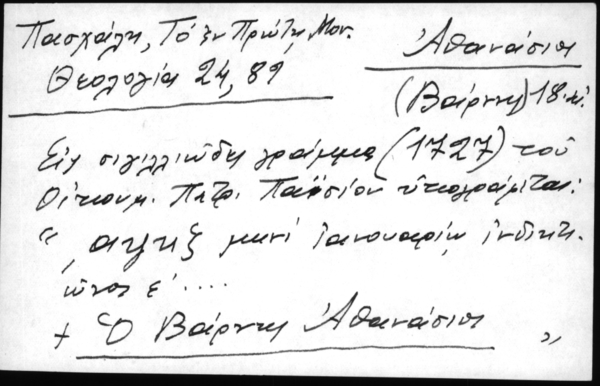 Πασχάλη, Τὸ ἐν Πρώτῃ Μον.
Θεολογία 24, 89,
Ἀθανάσιος
(Βάρνης) 18 αἰ.
Εἰς σιγιλλιῶδες γράμμα (1727) τοῦ
Οἰκουμ. Πατρ. Παϊσίου ὑπογράφεται:
“ μηνί Ἰανουαρίῳ ἰνδικτι-
ῶνος ε΄ ....
+ Ὁ Βάρνης Ἀθανάσιος ”